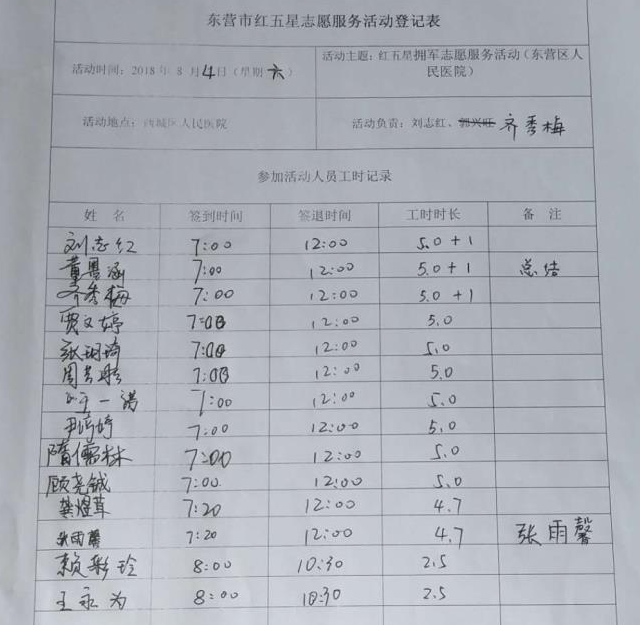 东营市红五星志愿服务活动登记表
活动时间：2018年8月4日（星期六） 活动主题：红五星拥军志愿服务活动（东营区人
民医院）
活动地点：西城区人民医院 活动负责：刘志红、郭兴旺 齐秀梅
参加活动人员工时记录
姓 名 签到时间 签退时间 工时时长 备 注
刘志红 7:00 12:00 5.0+1
董昱涵 7:00 12:00 5.0+1 总结
齐秀梅 7:00 12:00 5.0+1
贾文婷 7:00 12:00 5.0
张玥琦 7:00 12:00 5.0
周 7:00 12:00 5.0
一诺 7:00 12:00 5.0
尹婷婷 7:00 12:00 5.0
隋儒林 7:00 12:00 5.0
顾尧铖 7:00 12:00 5.0
龚煜茸 7:20 12:00 4.7
张雨馨 7:20 12:00 4.7 张雨馨
赖彩玲 8:00 10:30 2.5
王永为 8:00 10:30 2.5